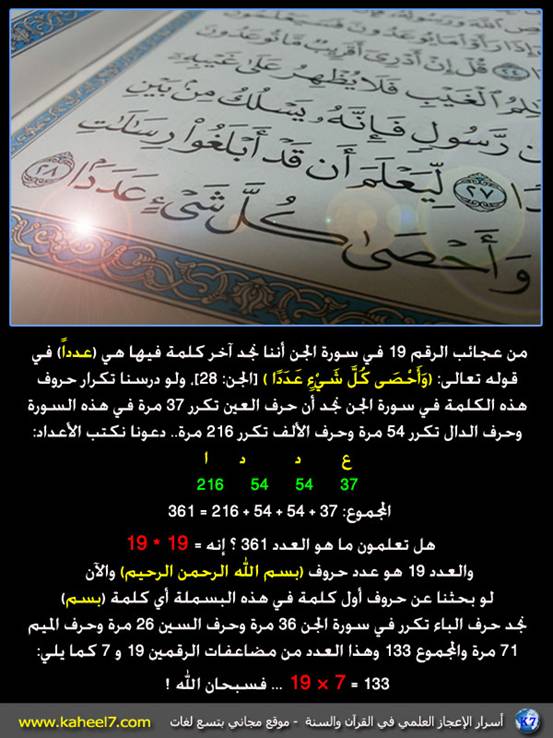 ص الله ورسوله
إِذَا رَأَوْا مَا يُوعَدُونَ فَسَيَعْلَمُونَ
٢٤ قُلْ إِنْ أَدْرِىٓ أَقَرِيبٌ مَّا تُوعَدُونَ
لِمُ ٱلْغَيْبِ فَلَا يُظْهِرُ عَلَىٰ غَيْبِهِۦٓ
ن رَّسُولٍ فَإِنَّهُۥ يَسْلُكُ مِنۢ بَيْنِ
ا ٢٧ لِّيَعْلَمَ أَن قَدْ أَبْلَغُوا۟ رِسَٰلَٰتِ
وَأَحْصَىٰ كُلَّ شَىْءٍ عَدَدًۢا ٢٨
من عجائب الرقم 19 في سورة الجن أننا نجد آخر كلمة فيها هي (عدداً) في
قوله تعالى: (وَأَحْصَى كُلَّ شَيْءٍ عَدَدًا ) [الجن: 28]، ولو درسنا تكرار حروف
هذه الكلمة في سورة الجن نجد أن حرف العين تكرر 37 مرة في هذه السورة
وحرف الدال تكرر 54 مرة وحرف الألف تكرر 216 مرة.. دعونا نكتب الأعداد:
ع د د ا
37 54 54 216
المجموع: 37 + 54 + 54 + 216 = 361
هل تعلمون ما هو العدد 361 ؟ إنه = 19 * 19
والعدد 19 هو عدد حروف (بسم الله الرحمن الرحيم) والآن
لو بحثنا عن حروف أول كلمة في هذه البسملة أي كلمة (بسم)
نجد حرف الباء تكرر في سورة الجن 36 مرة وحرف السين 26 مرة وحرف الميم
71 مرة والمجموع 133 وهذا العدد من مضاعفات الرقمين 19 و 7 كما يلي:
133 = 7 × 19 ... فسبحان الله !
K7 أسرار الإعجاز العلمي في القرآن والسنة - موقع مجاني بتسع لغات www.kaheel7.com